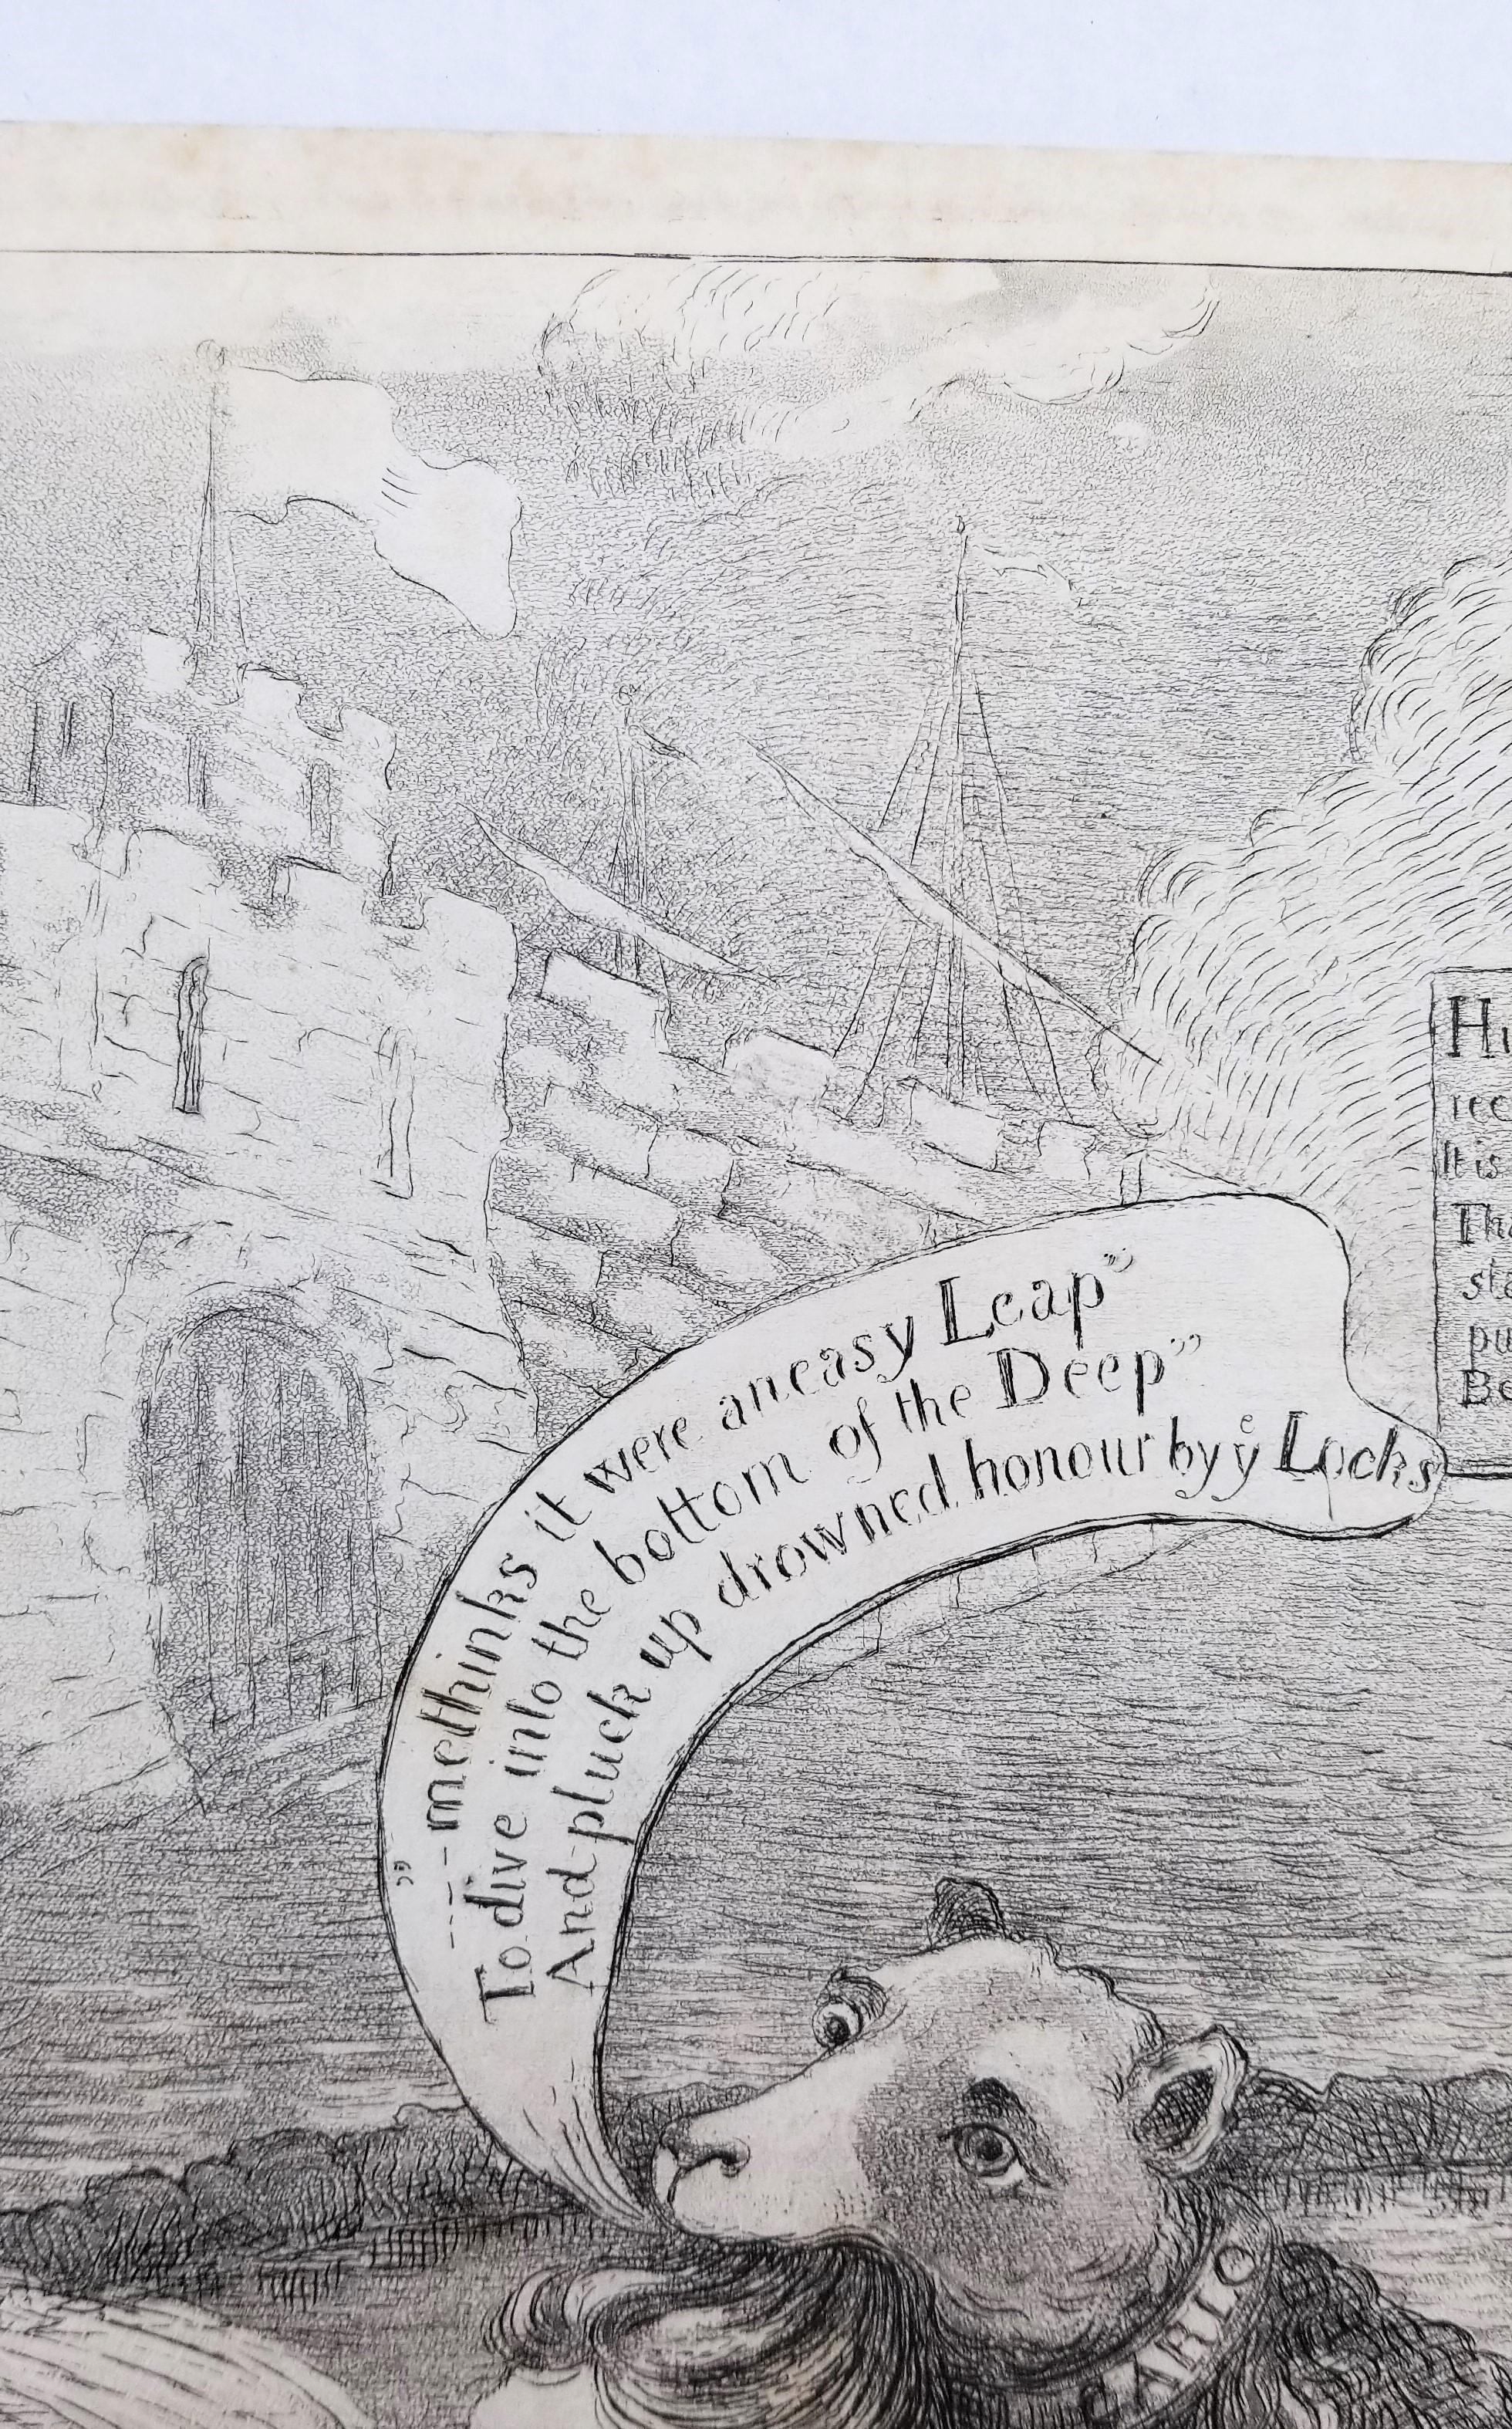 “---methinks it were an easy Leap”
To dive into the bottom of the Deep”
And pluck up drowned honour by yͤ Locks
It is
CARLO